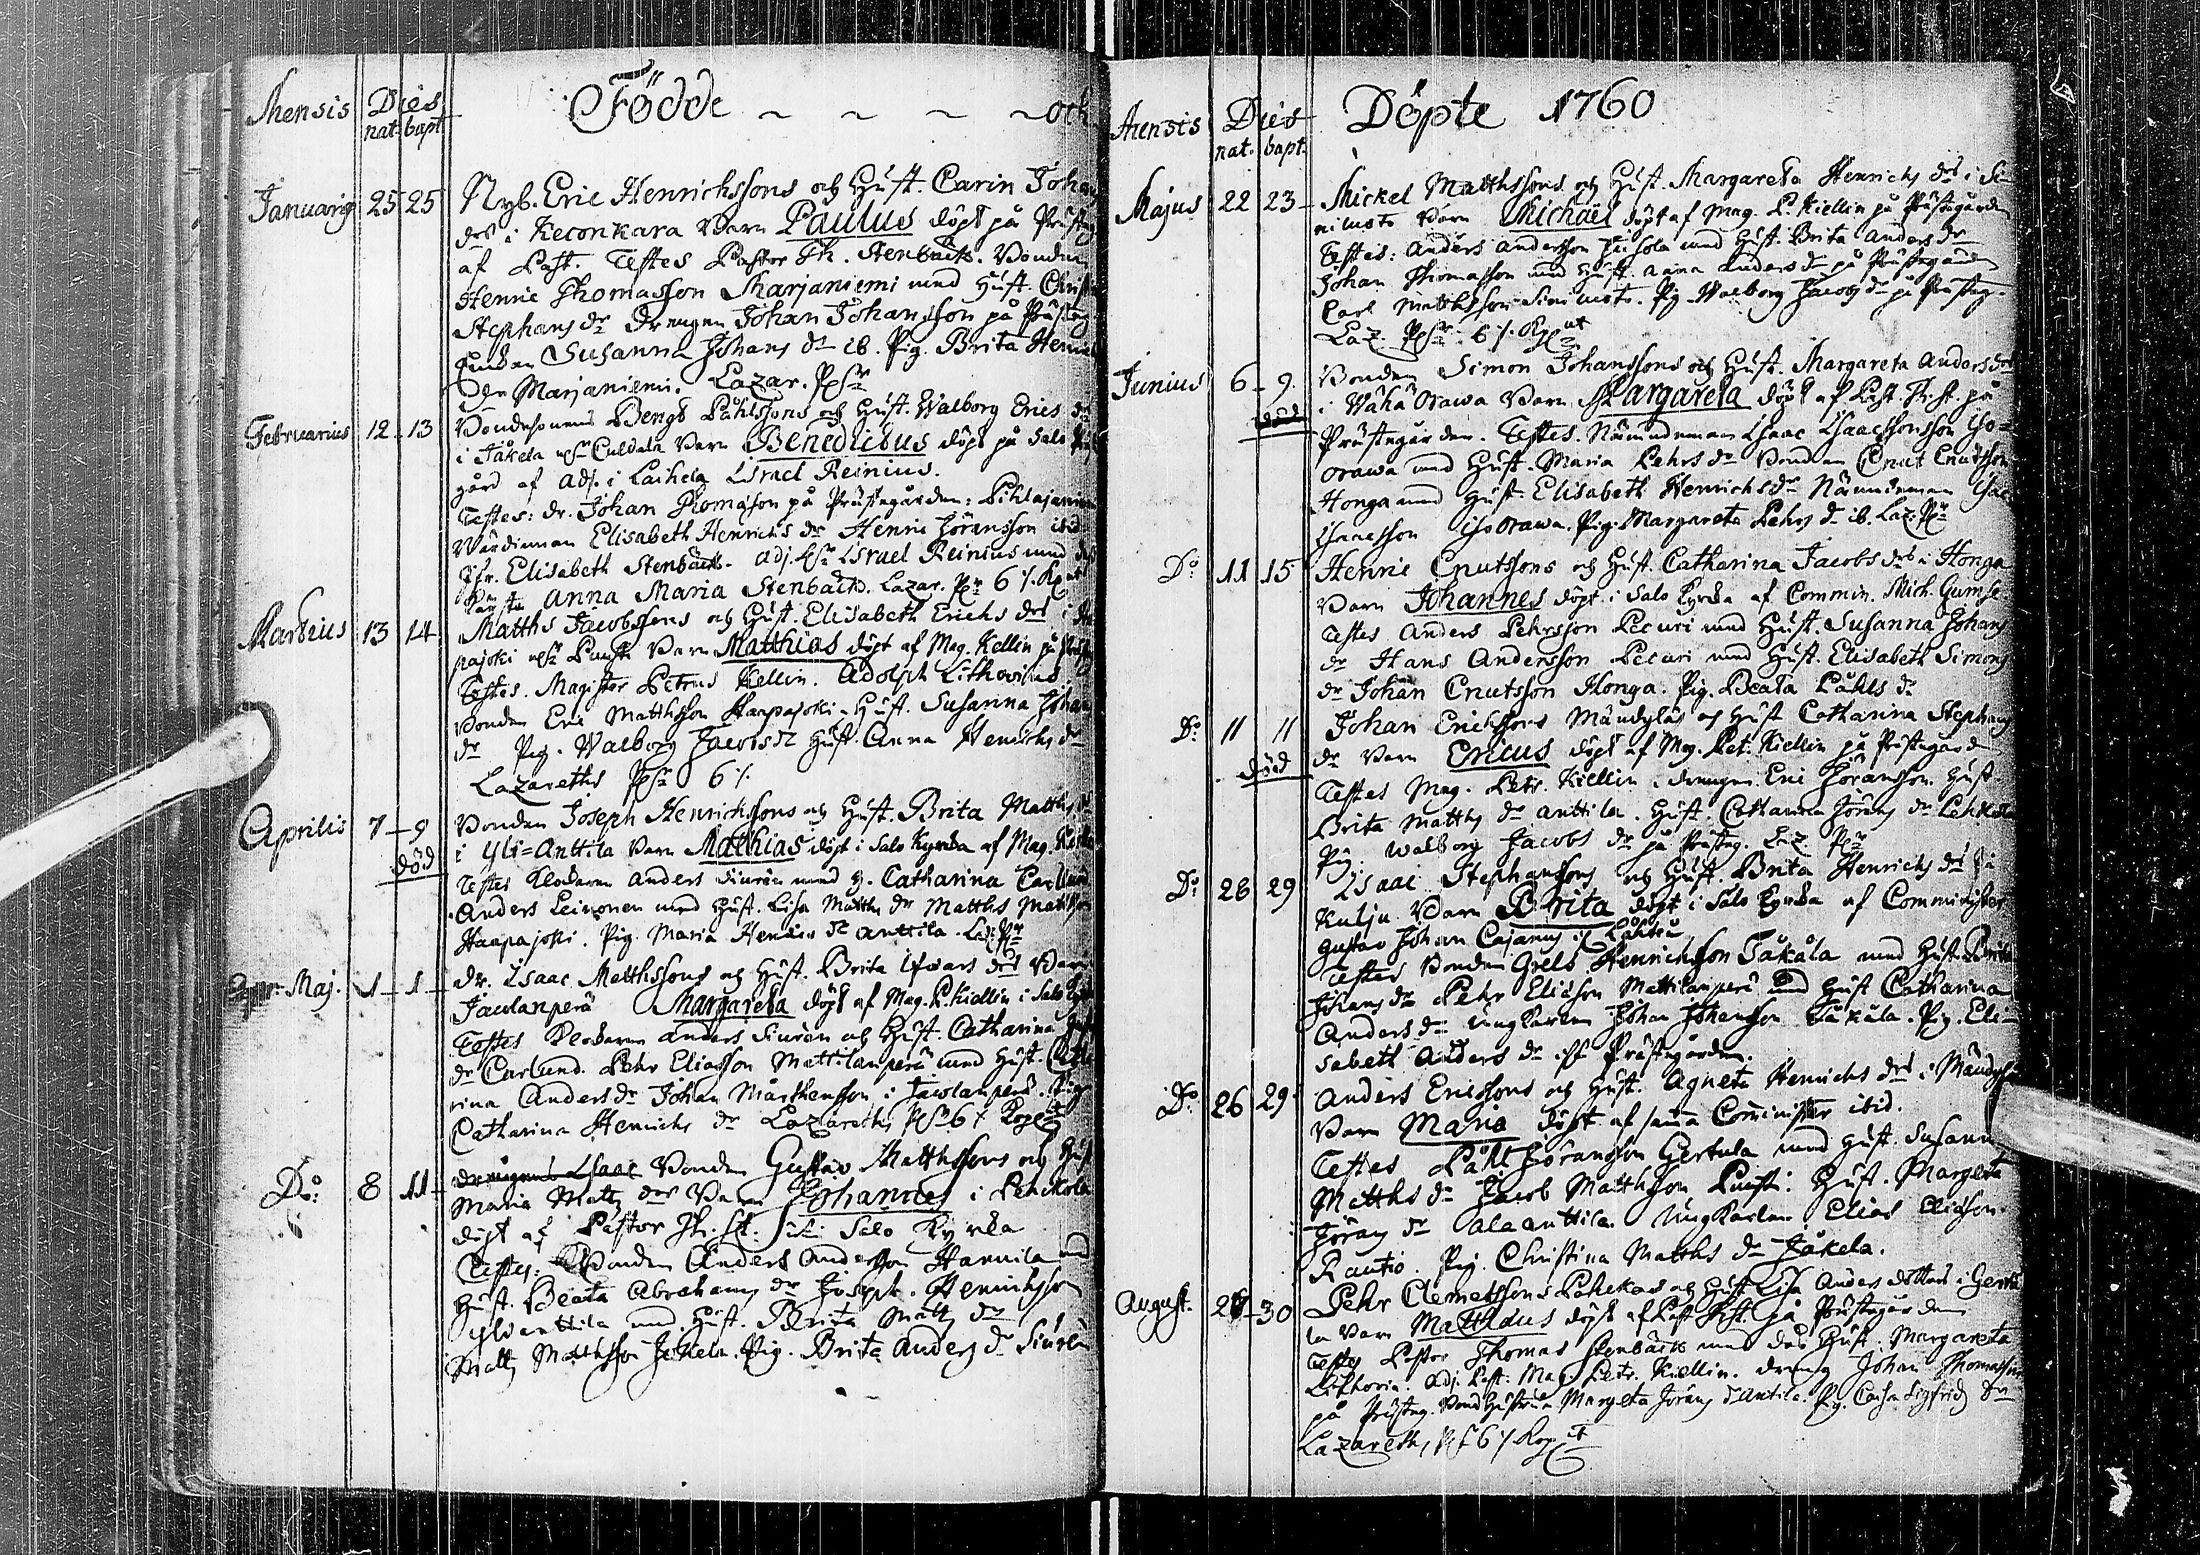 Mensis Dies Födde ~ ~ ~ ~ och
nat. bapt.
Januarij 25 25 Nyb. Eric Henrichssons och Hust. Carin Johans
drs i Keconkara Barn Paulus döpt på Präste
af Past. Testes Pastor Th. Stenbäck. Bonden
Henric Thomasson Marjaniemi med Hust. Christ
Stephans dr Drengen Johan Johansson på Präste
Susanna Johans dr ib. Pig. Brita Henric
der Marjaniemi. Lazar. Pgr
Februarius 12 - 13 Bondesonens Bengt Påhlssons och Hust. Walborg Erics dr
i Jåkela Barn Benedictus döpt på Salo Präst
gård af adj. i Laihela Israel Reinius.
Testes: dr. Johan Thomasson på Prästegården: Pihlajaniemi
Wärdinnan Elisabeth Henrichs dr Henric Jöransson ibid
Jfr. Elisabeth Stenbäck. adj. Israel Reinius med
Anna Maria Stenbäck. Lazar. Pgr 6 /.
Martius 13 14 Matths Jacobssons och Hust. Elisabeth Erichs drs i Haa
pajoki Barn Matthias döpt af Mag. Kellin på Präste
Testes. Magister Petrus Kellin. Adolph Lithovius
Bonden Eric Matthsson Haapajoki. Hust. Susanna Johans
dr Pig. Walborg Jacobs dr Hust. Anna Henrichs dr
Lazareths 6 /.
Aprilis 7 - 9 Bonden Joseph Henrichssons och Hust. Brita Matths
död
i Yli=Anttila Barn Mathias döpt i Salo Kyrcka af Mag. Kiellin
Testes Klockaren Anders Siurén med h. Catharina Carlund
Anders Leinonen med Hust. Lisa Matths dr Matths Mattsson
Haapajoki. Pig. Maria Henrics dr Anttila. Laz. Pgr
Maj. 1 - 1 - dr. Isaac Matthssons och Hust. Brita Ifvars drs Barn
Jaulanperä Margareta döpt af Mag. P. Kiellin i Salo
Testes Klockaren Anders Siurén och Hust. Catharina
dr Carlund. Pehr Eliasson Mattilanperä med Hust. Catha
rina Anders dr Johan Mårthensson i Jaulanperä. Pig.
Catharina Henrichs dr Lazareths 6 /.
Do: 8 11 - drengens Isaac Bonden Gustav Matthssons och Hust.
Maria Matts drs Barn Johannes i Pehckola
döpt af Pastor Th. St. i Salo Kyrcka
Testes. Bonden Anders Andersson Hannila med
Hust. Beata Abrahams dr Joseph Henrichsson
Ylianttila med Hust. Brita Matts dr
Matts Matthsson Jokela. Pig. Brita Anders dr Siurén
Mensis Dies Döpte 1760
nat. bapt.
Majus 22 23 - Mickel Matthssons och Hust. Margareta Henrichs drs i Si-
niluoto Barn Michäel döpt af Mag. P. Kiellin på Prästegården
Testes: Anders Andersson med Hust. Brita Anders dr
Johan Thomasson med Hust. Anna Anders dr på Prästegården
Carl Matthsson Siniluoto. Pig. Walborg Jacobs dr på Prästeg.
Laz. 6 /.
Junius 6 - 9. Bonden Simon Johanssons och Hust. Margareta Anders drs
död
i Wähä Orawa Barn Margareta döpt af Past. Th. St. på
Prästegården. Testes. Nämndeman Isaac Isaacsson Iso=
orawa med Hust. Maria Pehrs dr Bonden Cnut Cnutsson
Honga med Hust. Elisabeth Henrichs dr Nämndeman Isac
Isaacsson Iso Orawa. Pig. Margareta Pehrs dr ib. Laz. Pgr
Do: 11 15 Henric Cnutssons och Hust. Catharina Jacobs drs i Honga
Barn Johannes döpt i Salo Kyrcka af Commin. Mich. Gumse
Testes Anders Pehrsson Pecuri med Hust. Susanna Johans
dr Hans Andersson Pecuri med Hust. Elisabeth Simons
dr Johan Cnutsson Honga. Pig. Beata Påhls dr
Do: 11 11 Johan Erichssons Mändylä och Hust Catharina Stephans
död
dr Barn Ericus döpt af Mag. Pet. Kiellin på Prästegård
Testes Mag. Petr. Kiellin. drengen Eric Jöransson Hust.
Brita Matths dr Anttila. Hust. Catharina Jörans dr
Pig. Walborg Jacobs dr på Prästeg. Laz. Pgr
Do: 28 29 Isaac Stephanssons och Hust. Brita Henrichs drs på
Kulju Barn Brita döpt i Salo Kyrcka af Comminister
Gustav Johan Cajanus i
Testes Bonden Grels Henrichsson Jåkåla med Hust. Brita
Johans dr Pehr Eliæson Mattilanperä med Hust Catharina
Anders dr Ungkarlen Johan Johansson Jåkåla. Pig. Eli-
sabeth Anders dr Prästegården.
Do: 26 29 Anders Ericssons och Hust. Agneta Henrichs drs i Mändylä
Barn Maria döpt af samma Comminister ibid.
Testes Påhl Jöransson Gertula med Hust. Susanna
Matths dr Jacob Matthsson Hust. Margeta
Jörans dr Alaanttila Ungkarlen Elias Eliæson
Rautio. Pig. Christina Matths dr Jåkela.
August. 28 - 30 Pehr Clemetssons och Hust. Lisa Anders dotters i Gertu
la Barn Matthæus döpt af Past. Th. St. på Prästegården
Testes Pastor Thomas Stenbäck med dess Hust. Margareta
Lithovia. Adj. Past. Mag. Petr. Kiellin. dreng Johan Thomasson
på Prästeg. Bond Hustrun Margeta Jörans dr Anttila. Pig. Caisa Sigfrids dr
Lazareths 6 /.